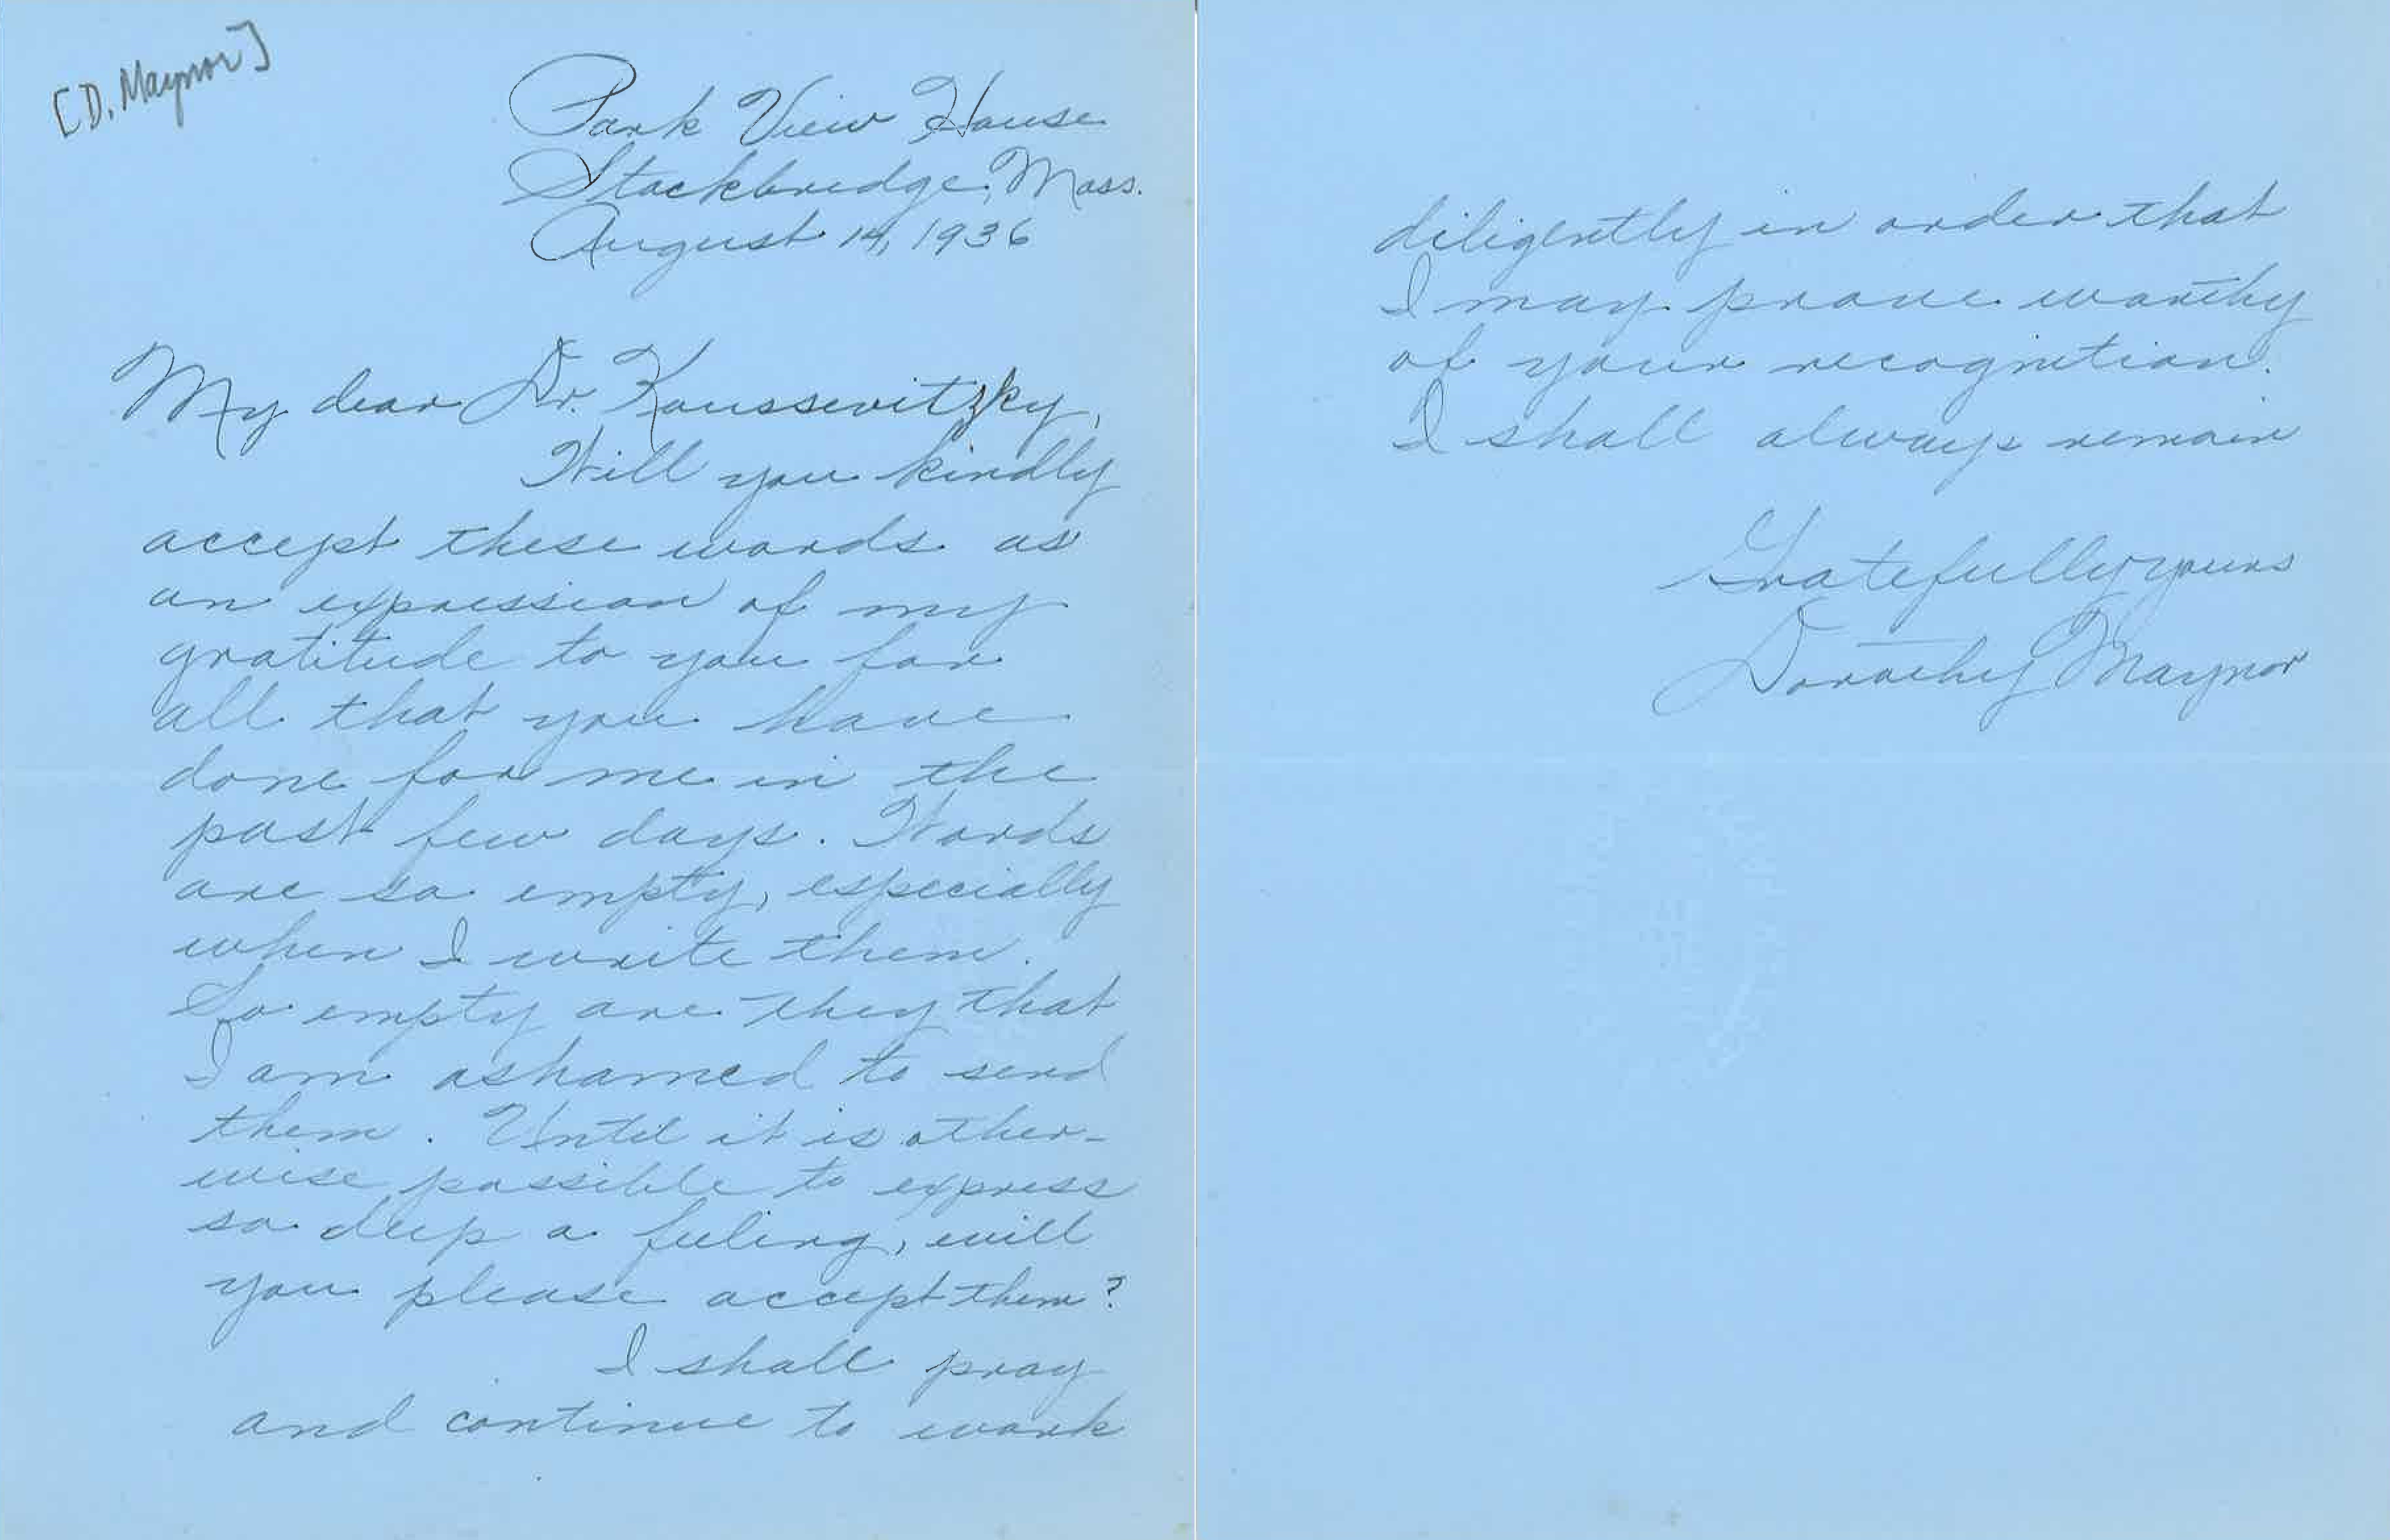 [D. Maynor]
Park View House
Stockbridge, Mass.
August 14, 1936
My dear Dr. Koussevitzky,
Will you kindly
accept these words as
an expression of my
gratitude to you for
all that you have
done for me in the
past few days. Words
are so empty, especially
when I write them.
So empty are they that
I am ashamed to send
them. Until it is other-
wise possible to express
so deep a feeling, will
you please accept them?
I shall pray
and continue to work
diligently in order that
I may prove worthy
of your recognition.
I shall always remain
Gratefully yours
Dorothy Maynor